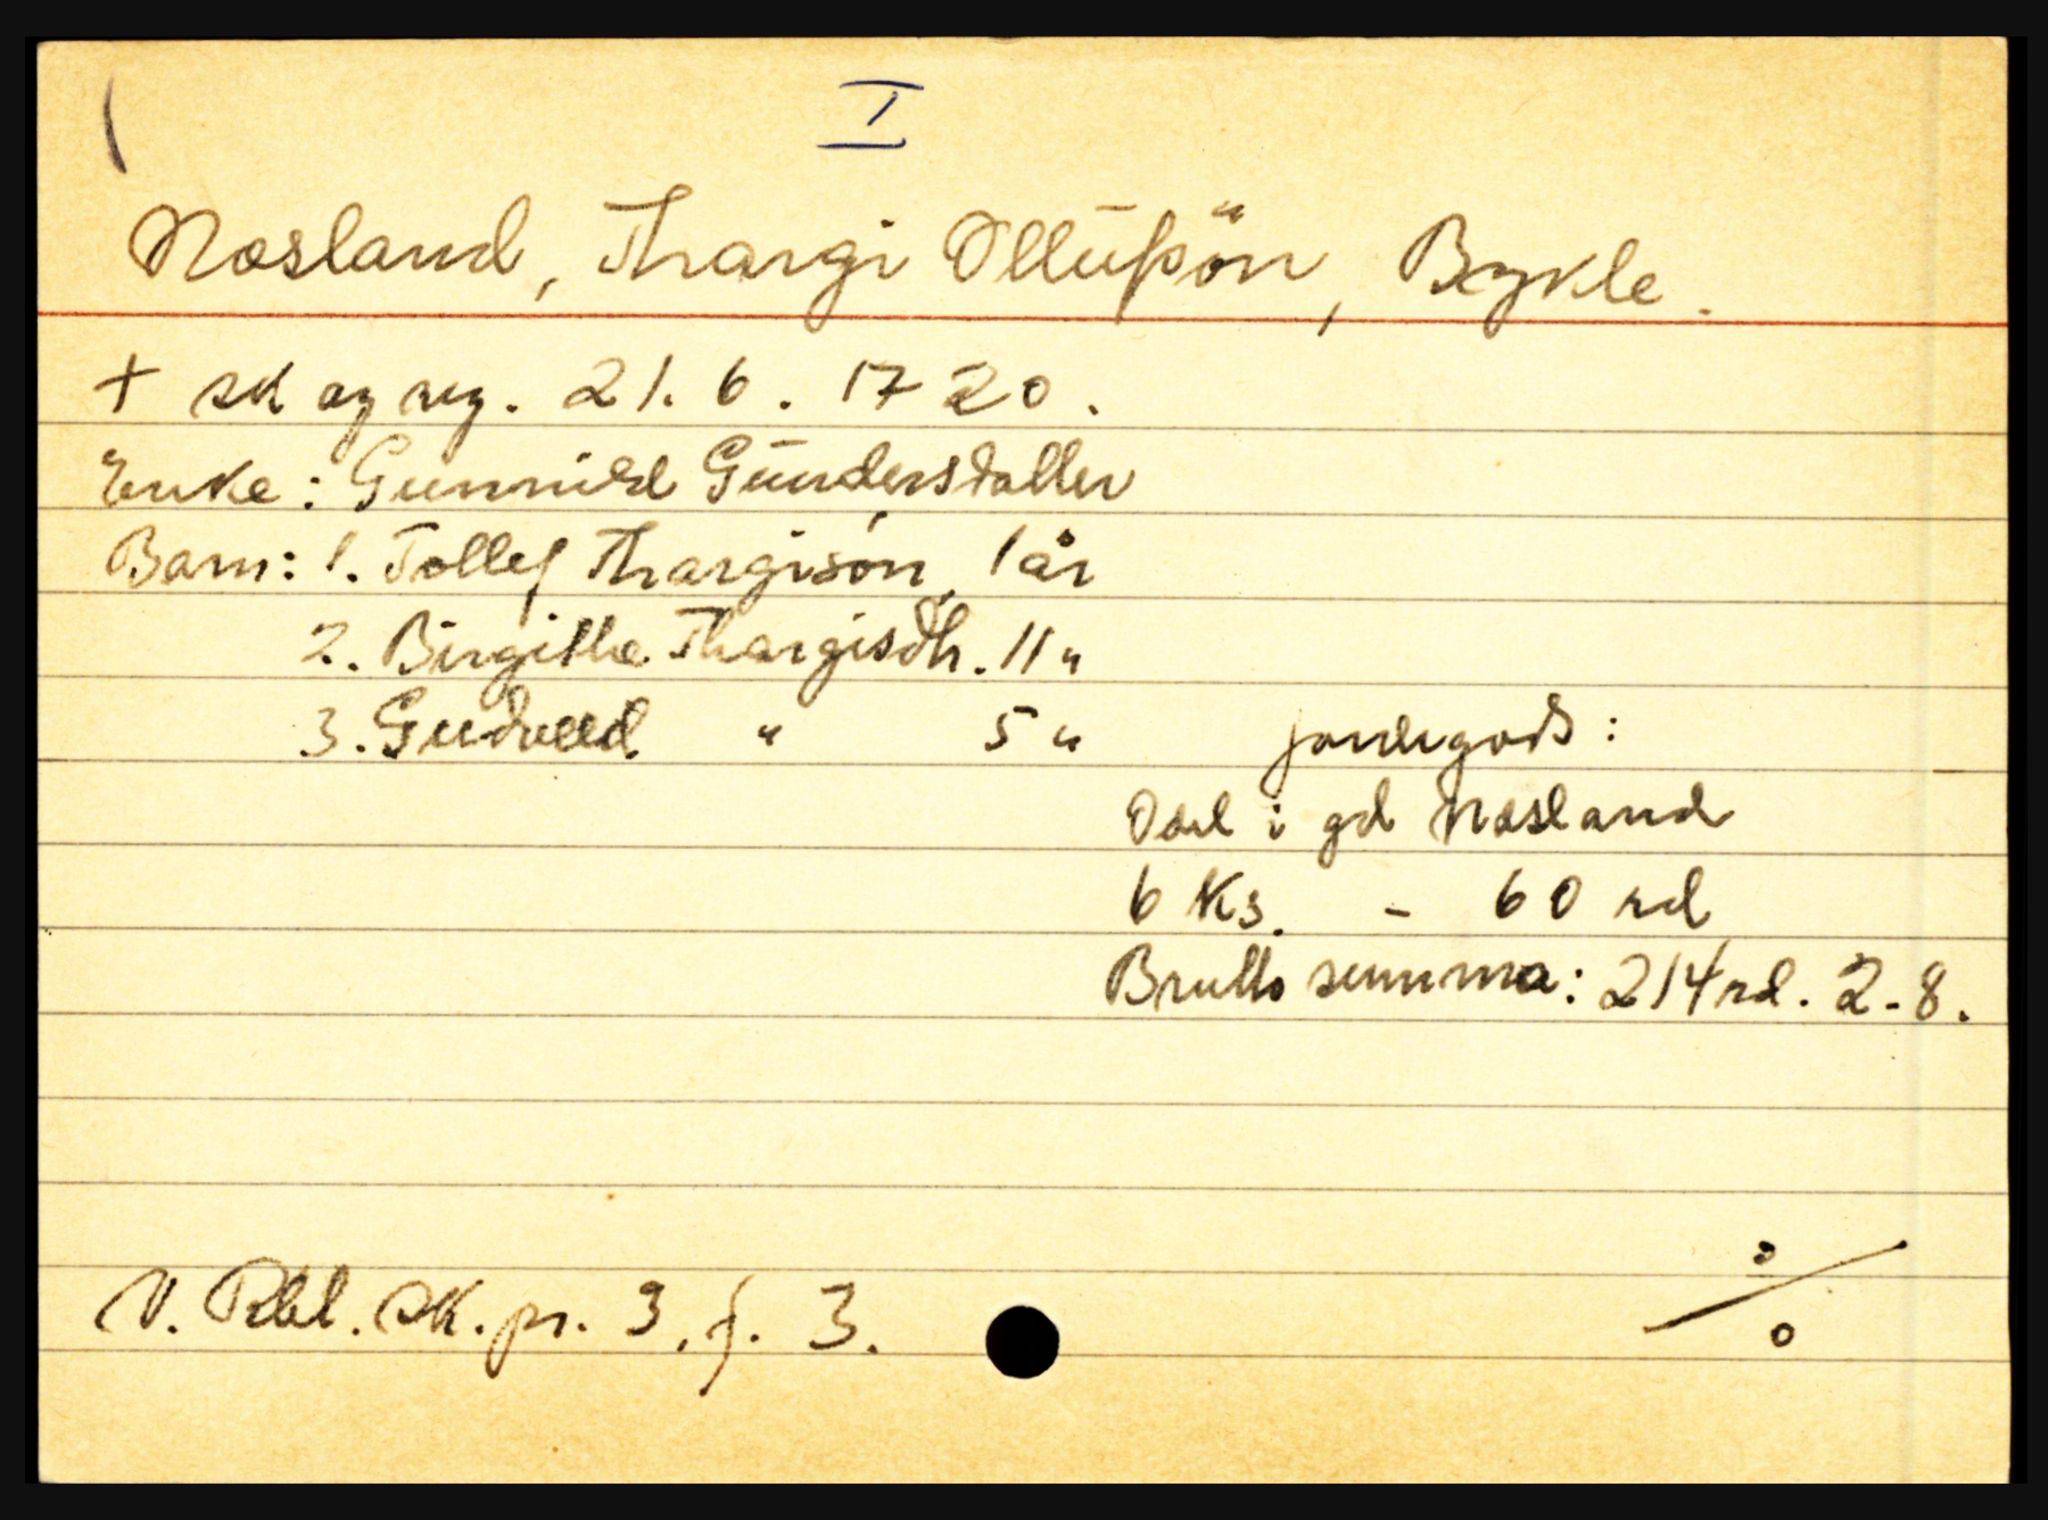 I
Nosland, Thargi Ollŭfsön, Bykle.
+ sk og reg. 21. 6. 1720.
Enke: Gunnild Gŭndersdatter
Barn: 1. Tollef Thargisón, 1 år
2. Birgithe Thargisdtr. 11 "
3. " 5 " jordegods:
Odel i gd Nosland
6 Ks. - 60 rd
Brutto summa: 214 rd. 2-8.
N. Rbl. sk. pr. 3, f. 3.